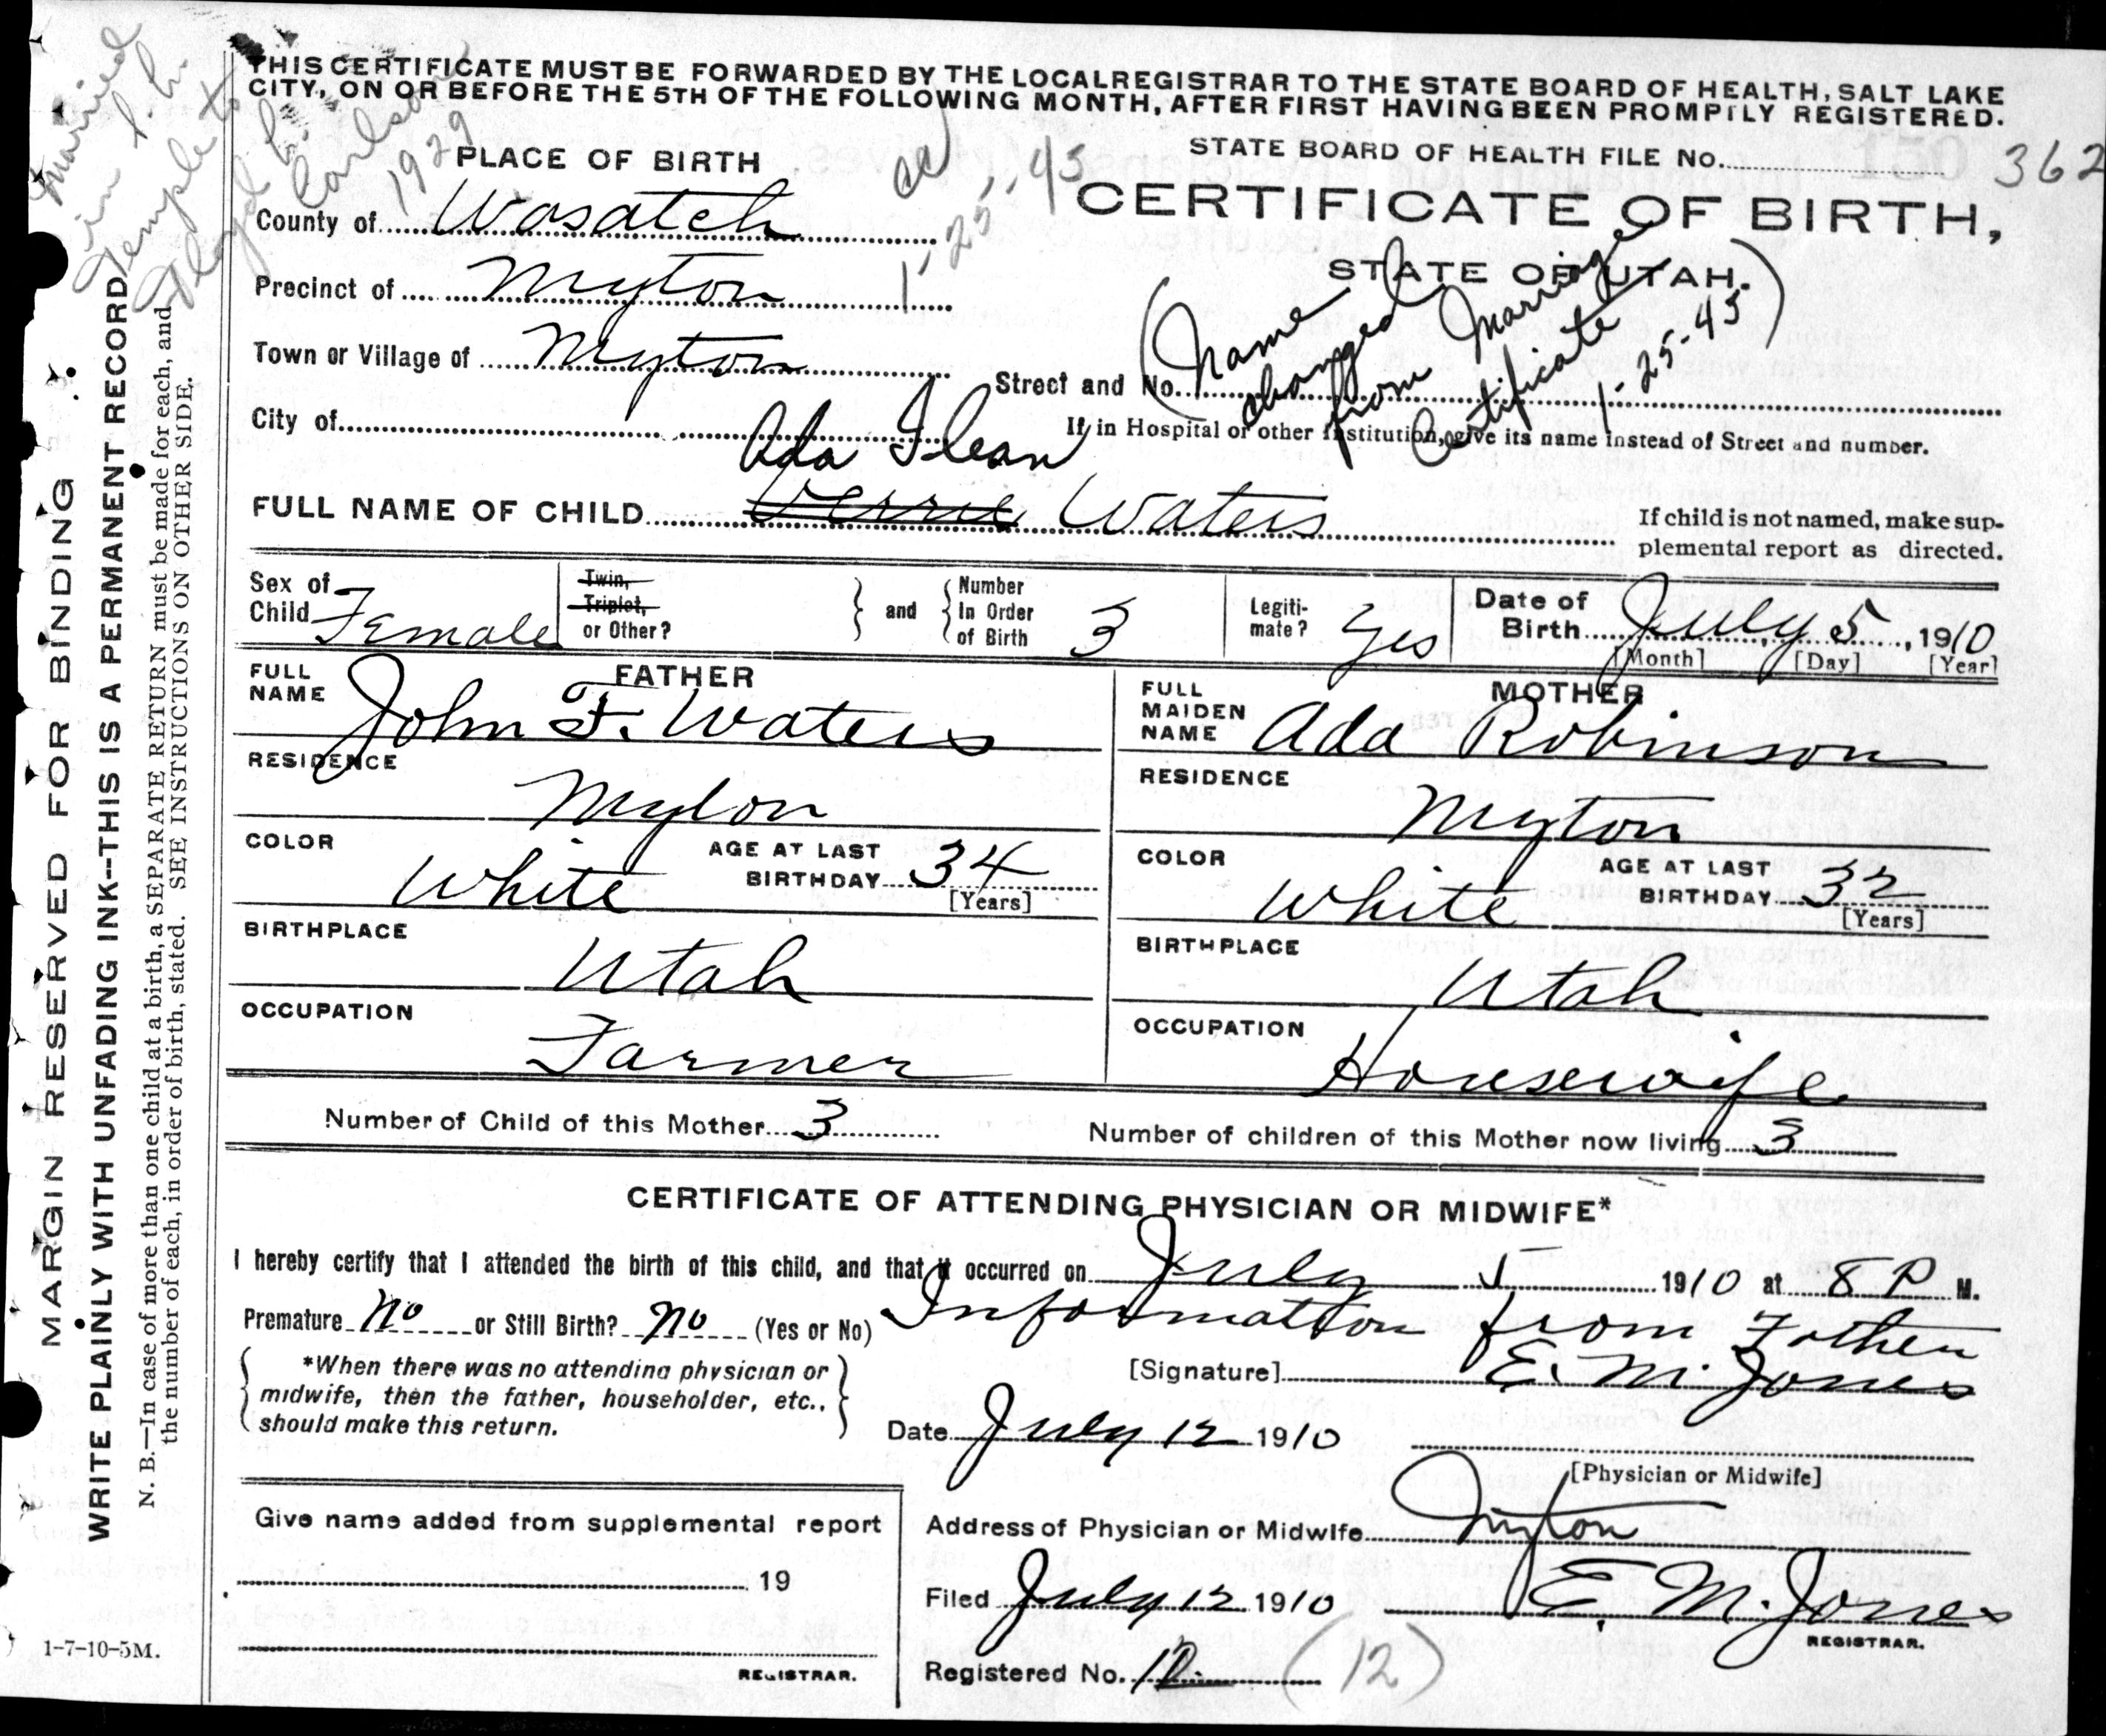 THIS CERTIFICATE MUST BE FORWARDED BY THE LOCAL REGISTRAR TO THE STATE BOARD OF HEALTH, SALT LAKE
CITY, ON OR BEFORE THE 5TH OF THE FOLLOWING MONTH, AFTER FIRST HAVING BEEN PROMPTLY REGISTERED.
Married
in S. L.
Temple to
Floyd L.
Carlson
1929
PLACE OF BIRTH
STATE BOARD OF HEALTH FILE NO. 362
1-25-45
CERTIFICATE OF BIRTH,
STATE OF UTAH.
County of Wasatch
Precinct of Myton
Town or Village of Myton
(Name
changed
from Marriage
Certificate
1-25-45)
Street and No.
City of
If in Hospital or other Institution, give its name instead of Street and number.
Ada Ilean
FULL NAME OF CHILD Verrie Waters
If child is not named, make sup-
plemental report as directed.
Sex of Child Female
Twin, Triplet, or Other?
and
Number In Order of Birth 3
Legiti-mate? Yes
Date of Birth July 5, 1910
[Month] [Day] [Year]
FATHER
FULL NAME John F. Waters
RESIDENCE
Myton
COLOR White
AGE AT LAST BIRTHDAY 34
[Years]
BIRTHPLACE
Utah
OCCUPATION
Farmer
MOTHER
FULL MAIDEN NAME Ada Robinson
RESIDENCE
Myton
COLOR White
AGE AT LAST BIRTHDAY 32
[Years]
BIRTHPLACE
Utah
OCCUPATION
Housewife
Number of Child of this Mother 3
Number of children of this Mother now living 3
CERTIFICATE OF ATTENDING PHYSICIAN OR MIDWIFE*
I hereby certify that I attended the birth of this child, and that it occurred on July 5 1910 at 8 P M.
Premature No or Still Birth? No (Yes or No) Information from Father
*When there was no attending physician or
midwife, then the father, householder, etc.,
should make this return.
[Signature] E. M. Jones
Date July 12 1910
[Physician or Midwife]
Give name added from supplemental report
19
REGISTRAR.
Address of Physician or Midwife Myton
Filed July 12 1910 E. M. Jones
REGISTRAR.
Registered No. 12 (12)
1-7-10-5M.
MARGIN RESERVED FOR BINDING
WRITE PLAINLY WITH UNFADING INK--THIS IS A PERMANENT RECORD
N. B.—In case of more than one child at a birth, a SEPARATE RETURN must be made for each, and
the number of each, in order of birth, stated. SEE INSTRUCTIONS ON OTHER SIDE.